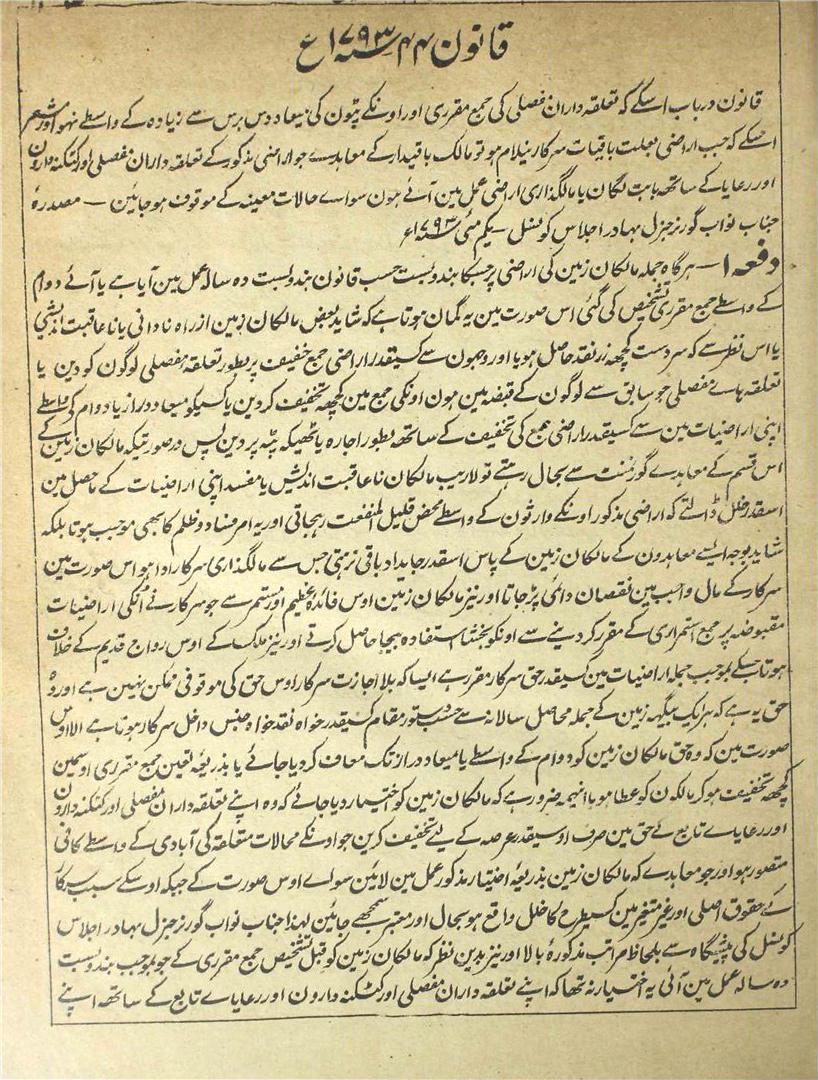 قانون ۴۴ سنہ ۱۷۹۳ ع
قانون درباب اسکے کہ تعلقہ داران مفصلی کی جمع مقرری اور اونکے پٹون کی میعاد دس برس سے زیادہ کے واسطے نہو اور مشعر
اسکے کہ جب اراضی بعلت باقیات سرکار نیلام ہو تو مالک باقیدار کے معاہدے جو اراضی مذکور کے تعلقہ داران مفصلی اور کٹکنہ دارون
اور رعایا کے ساتھ بابت لگان یا مالگذاری اراضی عمل مین آئے ہون سواے حالات معینہ کے موقوف ہو جائین — مصدرہٗ
جناب نواب گورنر جنرل بہادر اجلاس کونسل — یکم مئی سنہ ۱۷۹۳ع
دفعہ ۱ — ہرگاہ جملہ مالکان زمین کی اراضی پر جسکا بندوبست حسب قانون بندوبست دہ سالہ عمل مین آیا ہے یا آئے دوام
کے واسطے جمع مقرری تشخیص کی گئی اس صورت مین یہ گمان ہوتا ہے کہ شاید بعض مالکان زمین از راہ نادانی یا ناعاقبت اندیشی
یا اس نظر سے کہ سردست کچھہ زر نقد حاصل ہو یا اور وجہون سے کسیقدر اراضی جمع خفیف پر بطور تعلقہ مفصلی لوگون کو دین یا
تعلقہ ہاے مفصلی جو سابق سے لوگون کے قبضہ مین ہون اونکی جمع مین کچھہ تخفیف کر دین یا کسیکو میعاد دراز یا دوام کے واسطے
اپنی اراضیات مین سے کسیقدر اراضی جمع کی تخفیف کے ساتھہ بطور اجارہ یا ٹھیکہ پٹہ پر دین پس درصورتیکہ مالکان زمین کے
اس قسم کے معاہدے گورنمنٹ سے بحال رہتے تو لاریب مالکان ناعاقبت اندیش یا مفسد اپنی اراضیات کے ماحصل مین
اسقدر خلل ڈالتے کہ اراضی مذکور اونکے وارثون کے واسطے محض قلیل المنفعت رہجاتی اور یہ امر فساد و ظلم کا بھی موجب ہوتا بلکہ
شاید بوجہ ایسے معاہدون کے مالکان زمین کے پاس اسقدر جایداد باقی نرہتی جس سے مالگذاری سرکار ادا ہو اس صورت مین
سرکار کے مال واجب مین نقصان دائمی پڑ جاتا اور نیز مالکان زمین اوس فائدہ عظیم اور مستمر سے جو سرکار نے اُنکی اراضیات
مقبوضہ پر جمع استمراری کے مقرر کر دینے سے اونکو بخشا استفادہ بیجا حاصل کرتے اور نیز ملک کے اوس رواج قدیم کے خلاف
ہوتا جسکے بموجب جملہ اراضیات مین کسیقدر حق سرکار مقرر ہے ایسا کہ بلا اجازت سرکار اوس حق کی موقوفی ممکن نہین ہے اور وہ
حق یہ ہے کہ ہر ایک بیگہہ زمین کے جملہ محاصل سالانہ سے حسب دستور مقام کسیقدر خواہ نقد خواہ جنس داخل سرکار ہوتا ہے الا اوس
صورت مین کہ وہ حق مالکان زمین کو دوام کے واسطے یا میعاد دراز تک معاف کر دیا جائے یا بذریعہٗ تعین جمع مقرری اوسمین
کچھہ تخفیف ہو کر مالکون کو عطا ہو باانیہمہ ضرور ہے کہ مالکان زمین کو اختیار دیا جائے کہ وہ اپنے تعلقہ داران مفصلی اور کٹکنہ دارون
اور رعایاے تابع کے حق مین صرف اوسیقدر عرصہ کے لیے تخفیف کرین جو اونکے محالات متعلقہ کی آبادی کے واسطے کافی
متصور ہو اور جو معاہدے کہ مالکان زمین بذریعہٗ اختیار مذکور عمل مین لائین سواے اوس صورت کے جبکہ اوسکے سبب سرکار
کے حقوق اصلی اور غیر متغیر مین کسیطرح کا خلل واقع ہو بحال اور معتبر سمجھے جائین لہذا جناب نواب گورنر جنرل بہادر اجلاس
کونسل کی پیشگاہ سے بلحاظ مراتب مذکورہٗ بالا اور نیز بدین نظر کہ مالکان زمین کو قبل تشخیص جمع مقرری کے جو بموجب بندوبست
دہ سالہ عمل مین آئی یہ اختیار نہ تھا کہ اپنے تعلقہ داران مفصلی اور کٹکنہ دارون اور رعایاے تابع کے ساتھہ اپنے